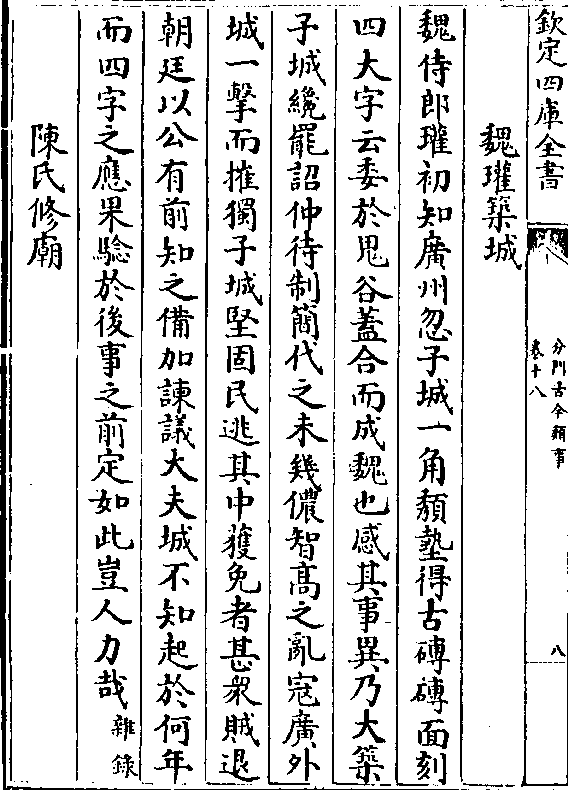 欽定四庫全書
分門古今類事
卷十八
八
魏瓘築城
魏侍郎瓘初知廣州忽子城一角頽墊得古磚磚面刻
四大字云委於鬼谷蓋合而成魏也感其事異乃大築
子城纔罷詔仲待制簡代之未幾儂智高之亂寇廣外
城一擊而摧獨子城堅固民逃其中獲免者甚衆賊退
朝廷以公有前知之備加諫議大夫城不知起於何年
而四字之應果驗於後事之前定如此豈人力哉 雜錄
陳氏修廟